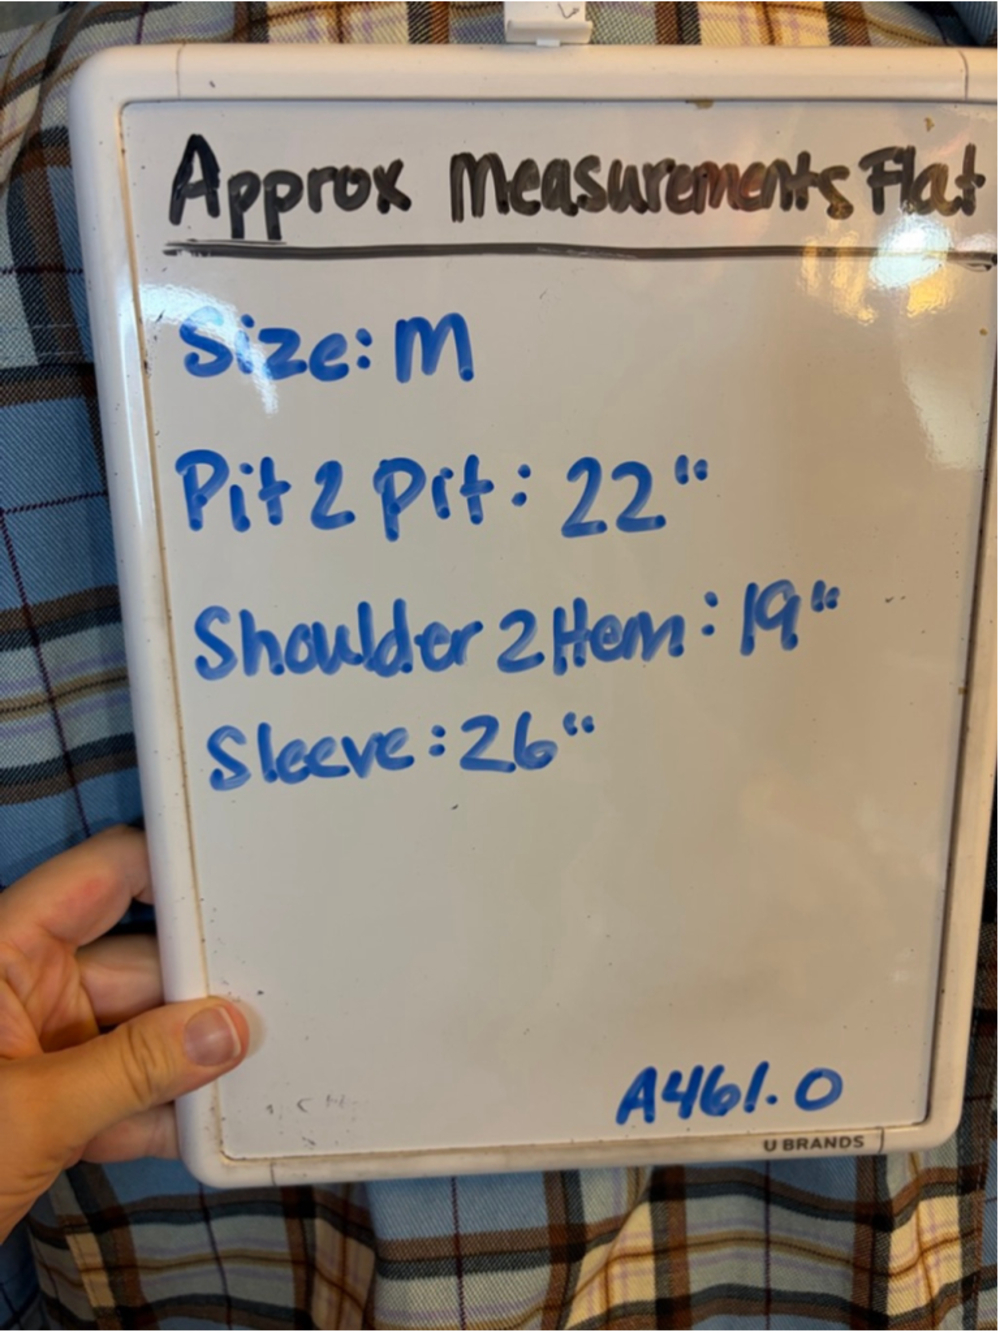 Approx Measurements Flat
Size: M
Pit 2 Pit: 22"
Shoulder 2 Hem: 19"
Sleeve: 26"
A461.0
U BRANDS